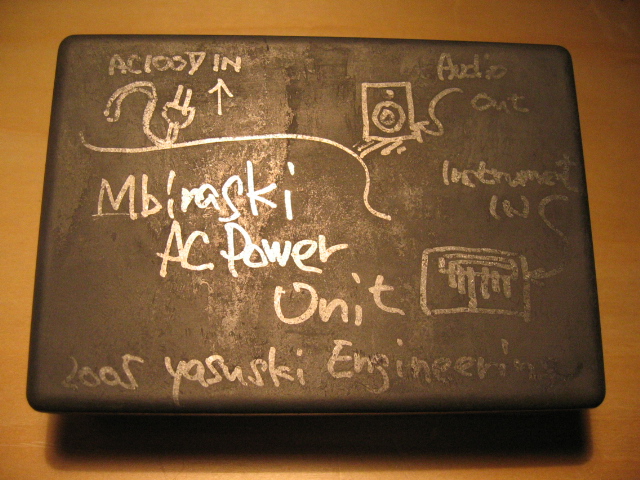 AC100V IN
Audio
Out
Instrument
IN
Mbiraski
AC Power
Unit
2005 Yasuski Engineering